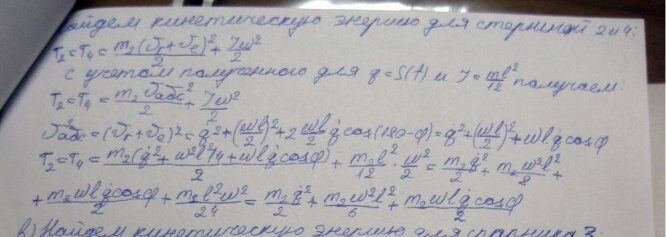 Найдем кинетическую энергию для стержней 2 и 4:
T₂ = T₄ = m₂(v̄ᵣ+v̄ₑ)²/2 + Jω²/2
с учетом полученного для q = S(t) и J = ml²/12 получаем:
T₂ = T₄ = m₂v²абс/2 + Jω²/2
v̄²абс = (v̄ᵣ+v̄ₑ)² = q̇² + (ωl/2)² + 2 ωl/2 q̇ cos(180-φ) = q̇² + (ωl/2)² + ωlq̇cosφ
T₂ = T₄ = m₂(q̇² + ω²l²/4 + ωlq̇cosφ)/2 + m₂l²/12 · ω²/2 = m₂q̇²/2 + m₂ω²l²/8 +
+ m₂ωlq̇cosφ/2 + m₂l²ω²/24 = m₂q̇²/2 + m₂ω²l²/6 + m₂ωlq̇cosφ/2
в) Найдем кинетическую энергию для 3: